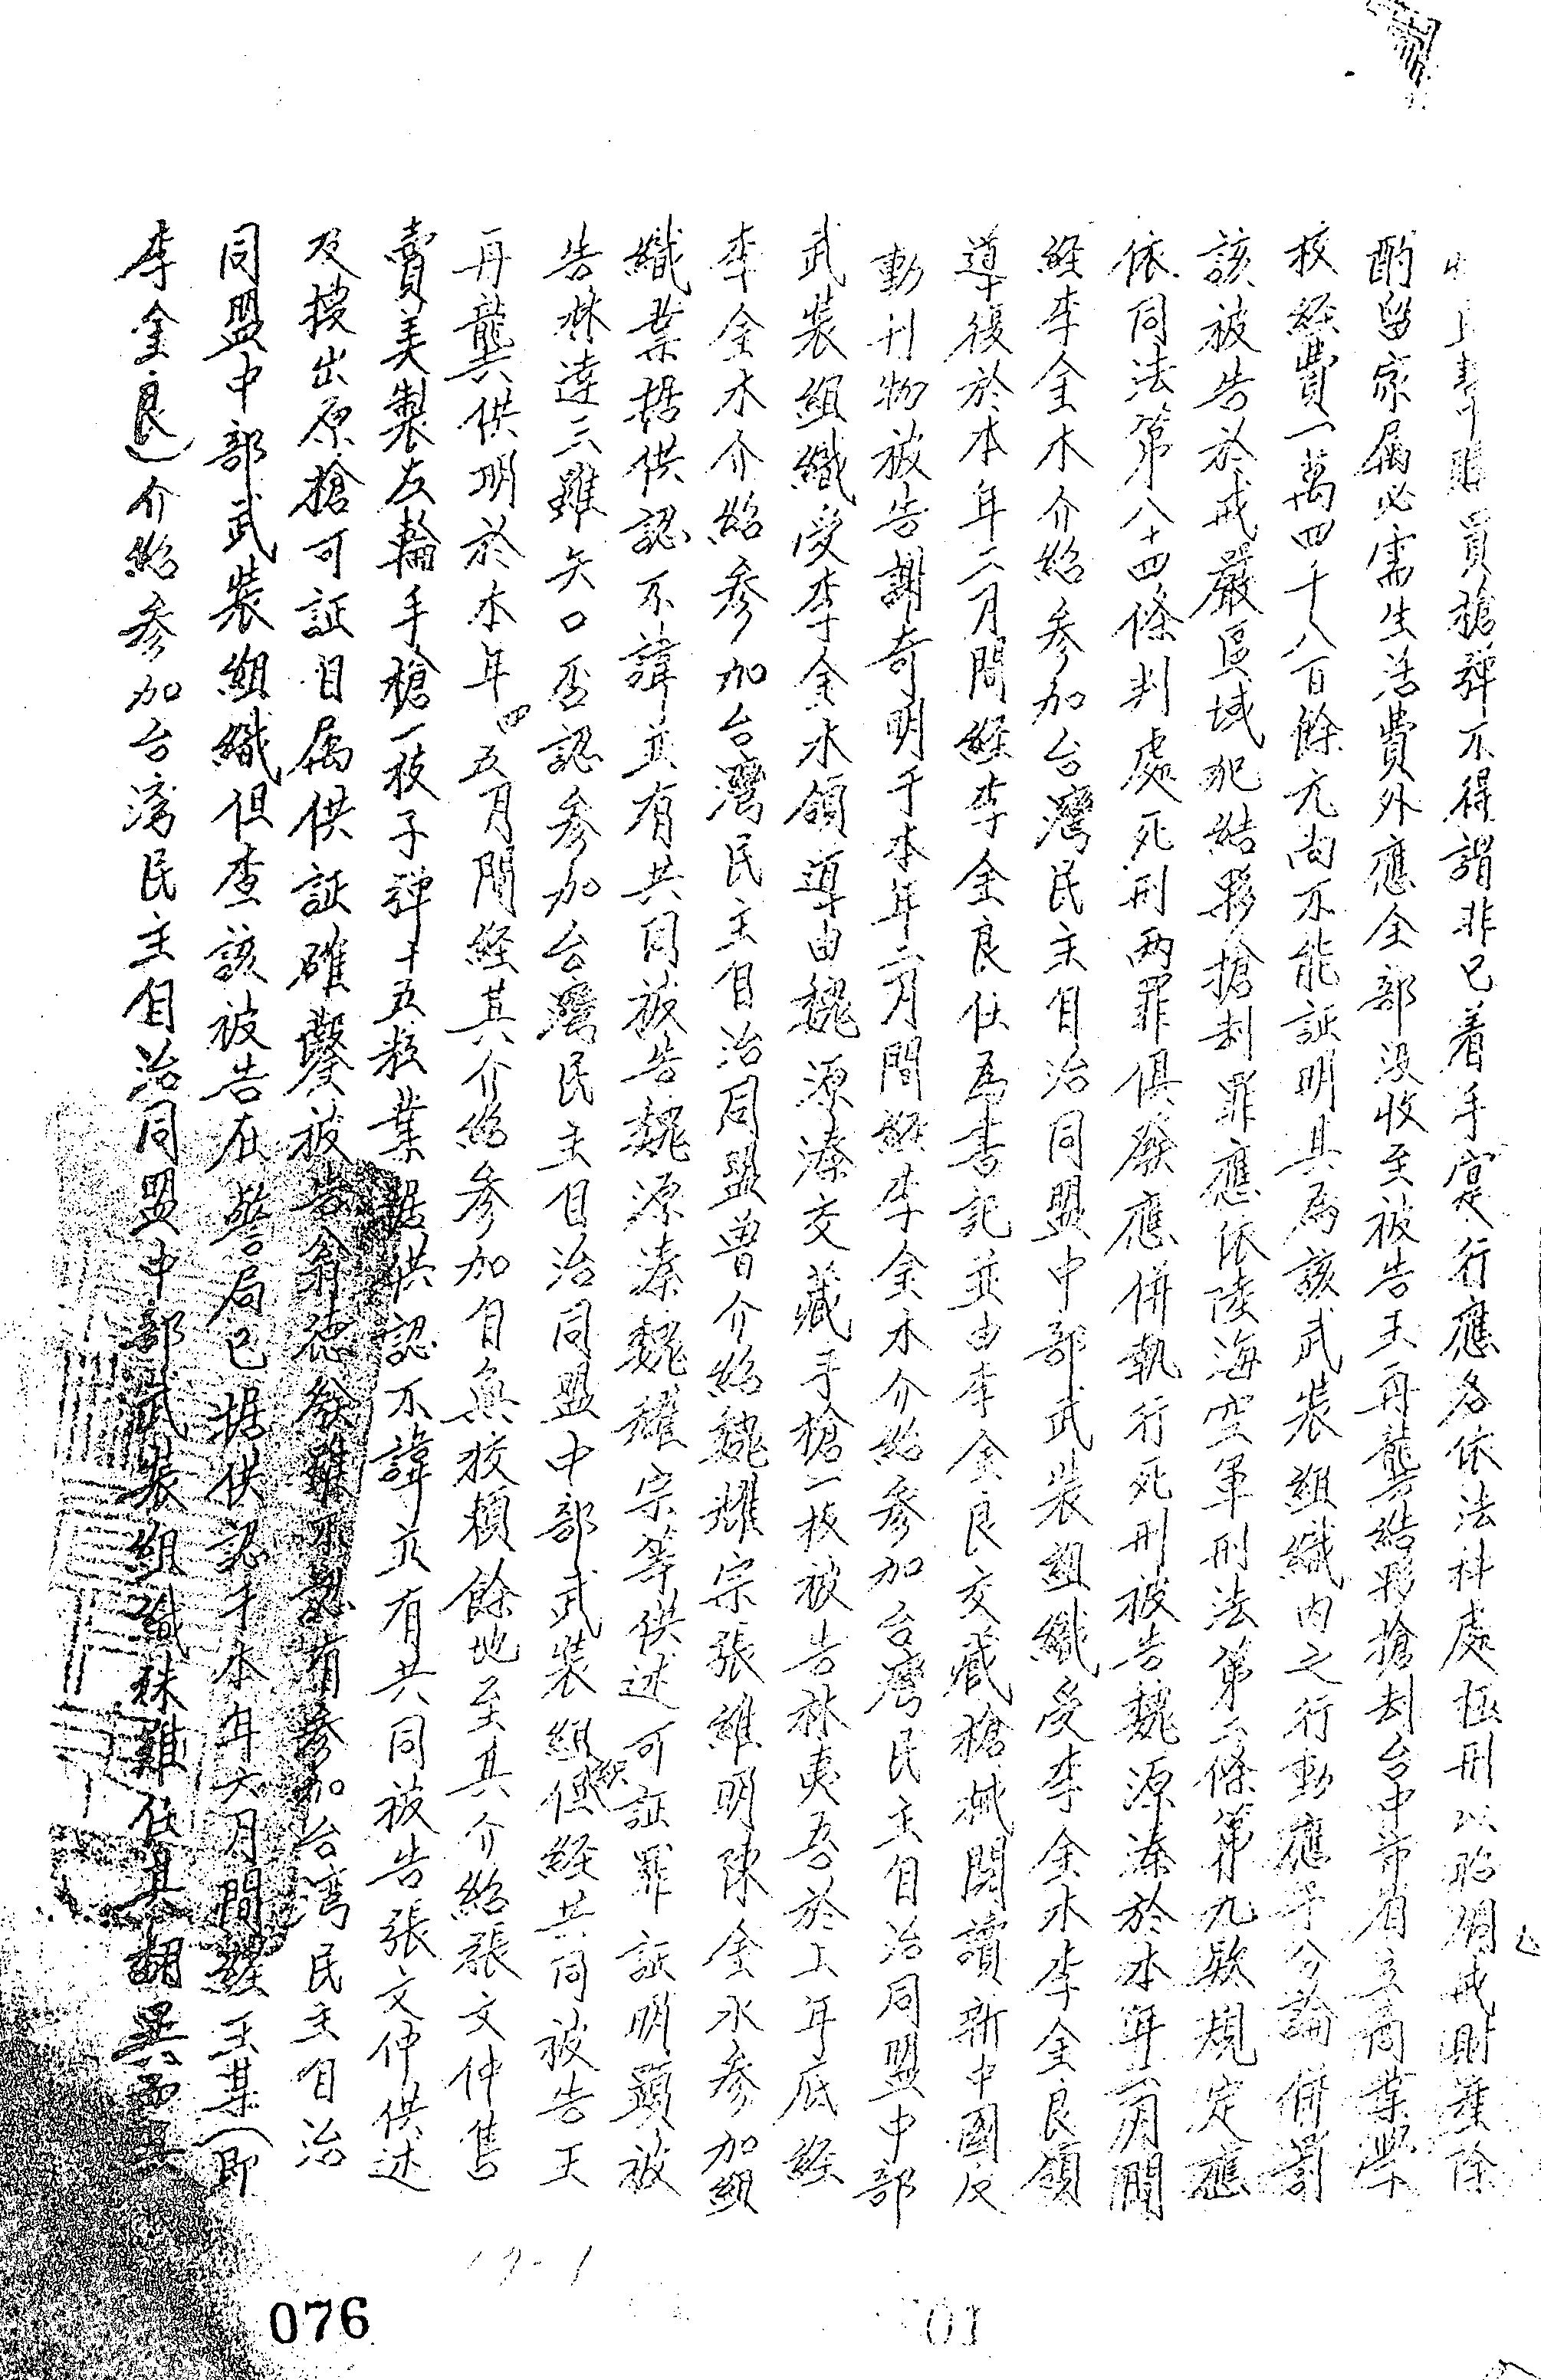 購買槍彈不得謂非已着手實行應各依法科處極刑以昭烱戒財產除
酌留家屬必需生活費外應全部沒收至被告王再龔結夥搶刦台中市省立商業學
校經費一萬四千八百餘元尚不能証明其為該武裝組織內之行動應予分論併罰
該被告於戒嚴區域犯結夥搶刦罪應依陸海空軍刑法第二條第九欵規定應
依同法第八十四條判處死刑兩罪俱發應併執行死刑被告魏源溱於本年二月間
經李金木介紹參加台灣民主自治同盟中部武裝組織受李金木李金良領
導後於本年二月間經李金良任為書記並由李金良交藏槍械閱讀新中國反
動刊物被告謝奇明于本年二月間經李金木介紹參加台灣民主自治同盟中部
武裝組織受李金水領導由魏源溱交藏手槍一枝被告林夷吾於上年底經
李金木介紹參加台灣民主自治同盟曾介紹魏耀宗張維明陳金水參加組
織業据供認不諱並有共同被告魏源溱魏耀宗等供述可証罪証明顯被
告林達三雖矢口否認參加台灣民主自治同盟中部武裝組織但經共同被告王
再龔供明於本年四五月間經其介紹參加自無狡賴餘地至其介紹張文仲售
賣美製左輪手槍一枝子彈十五粒業据供認不諱並有共同被告張文仲供述
及搜出原槍可証自属供証確鑿被告翁德發雖不認有參加台湾民主自治
同盟中部武裝組織但查該被告在警局已据供認于本年六月間經王某(即
李金良)介紹參加台湾民主自治同盟中部武裝組織殊難任其翻異
17-1
076
01